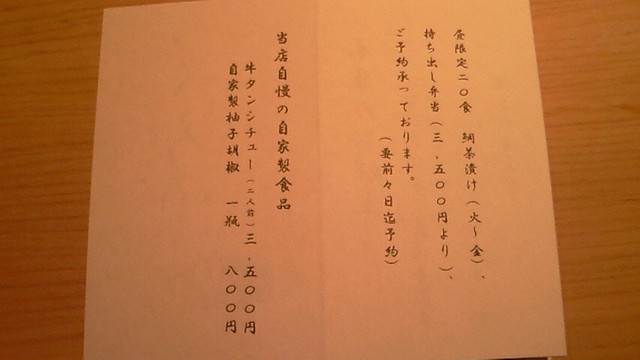 昼限定二〇食　鯛茶漬け（火～金）、
持ち出し弁当（三,五〇〇円より）、
ご予約承っております。
（要前々日迄予約）
当店自慢の自家製食品
牛タンシチュー（二人前）三,五〇〇円
自家製柚子胡椒　一瓶　八〇〇円